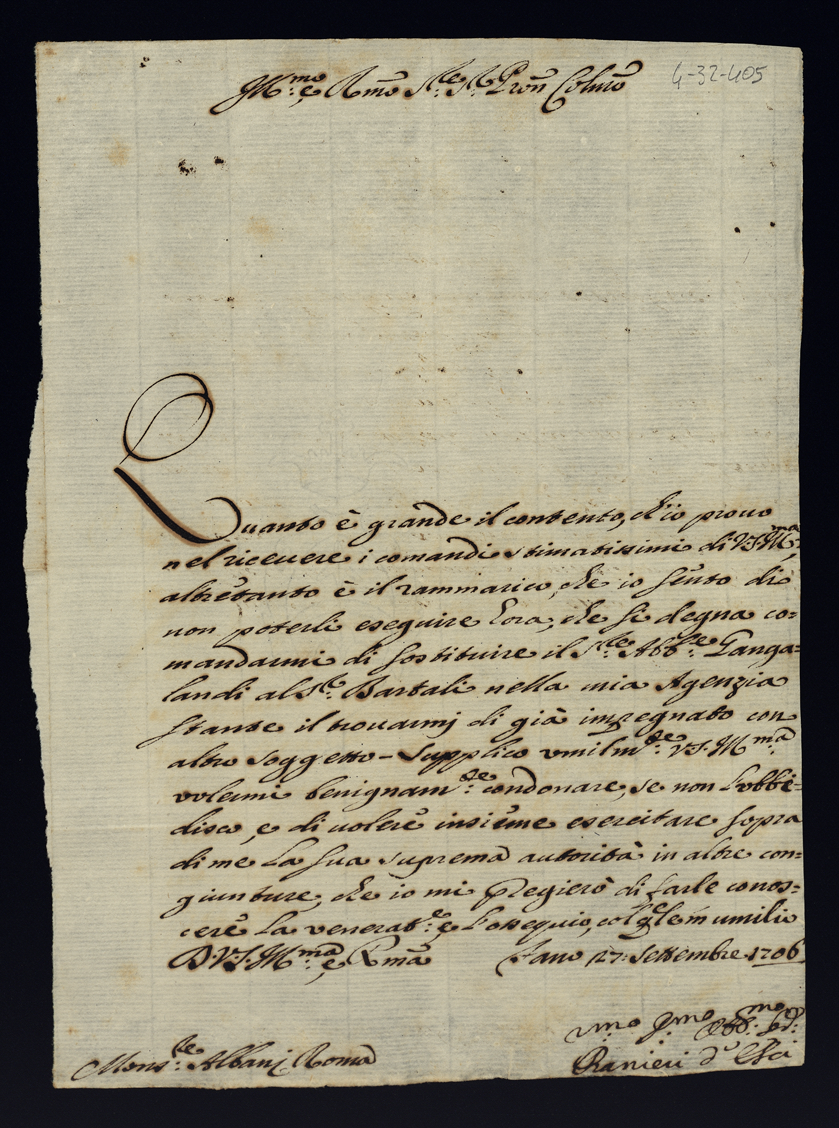 Ill.mo e Rmo Sre Sr Pron Colmo
4-32-405
Quanto è grande il contento, ch'io prouo
nel riceuere i comandi stimatissimi di V.S. Ill.ma
altretanto è il rammarico, che io sento di
non poterli eseguire hora, che si degna co=
mandarmi di sostituire il Sre Abb.e Ganga=
landi al Sr Bartali nella mia Agenzia
stante il trouarmj di già impegnato con
altro soggetto - Supplico umilmte V.S. Ill.ma
volermi benignamte condonare, se non l'obbe=
disco, e di uolere insieme esercitare sopra
di me la sua suprema autorità in altre con=
giunture, che io mi pregierò di farle conos=
cere la venerate e l'ossequio, col qle m'umilio
D. V.S. Ill.ma e Rma Fano 27: Settembre 1706
Vmo Obb.mo
Mons.re Albanj Roma
Ranieri d'Elci